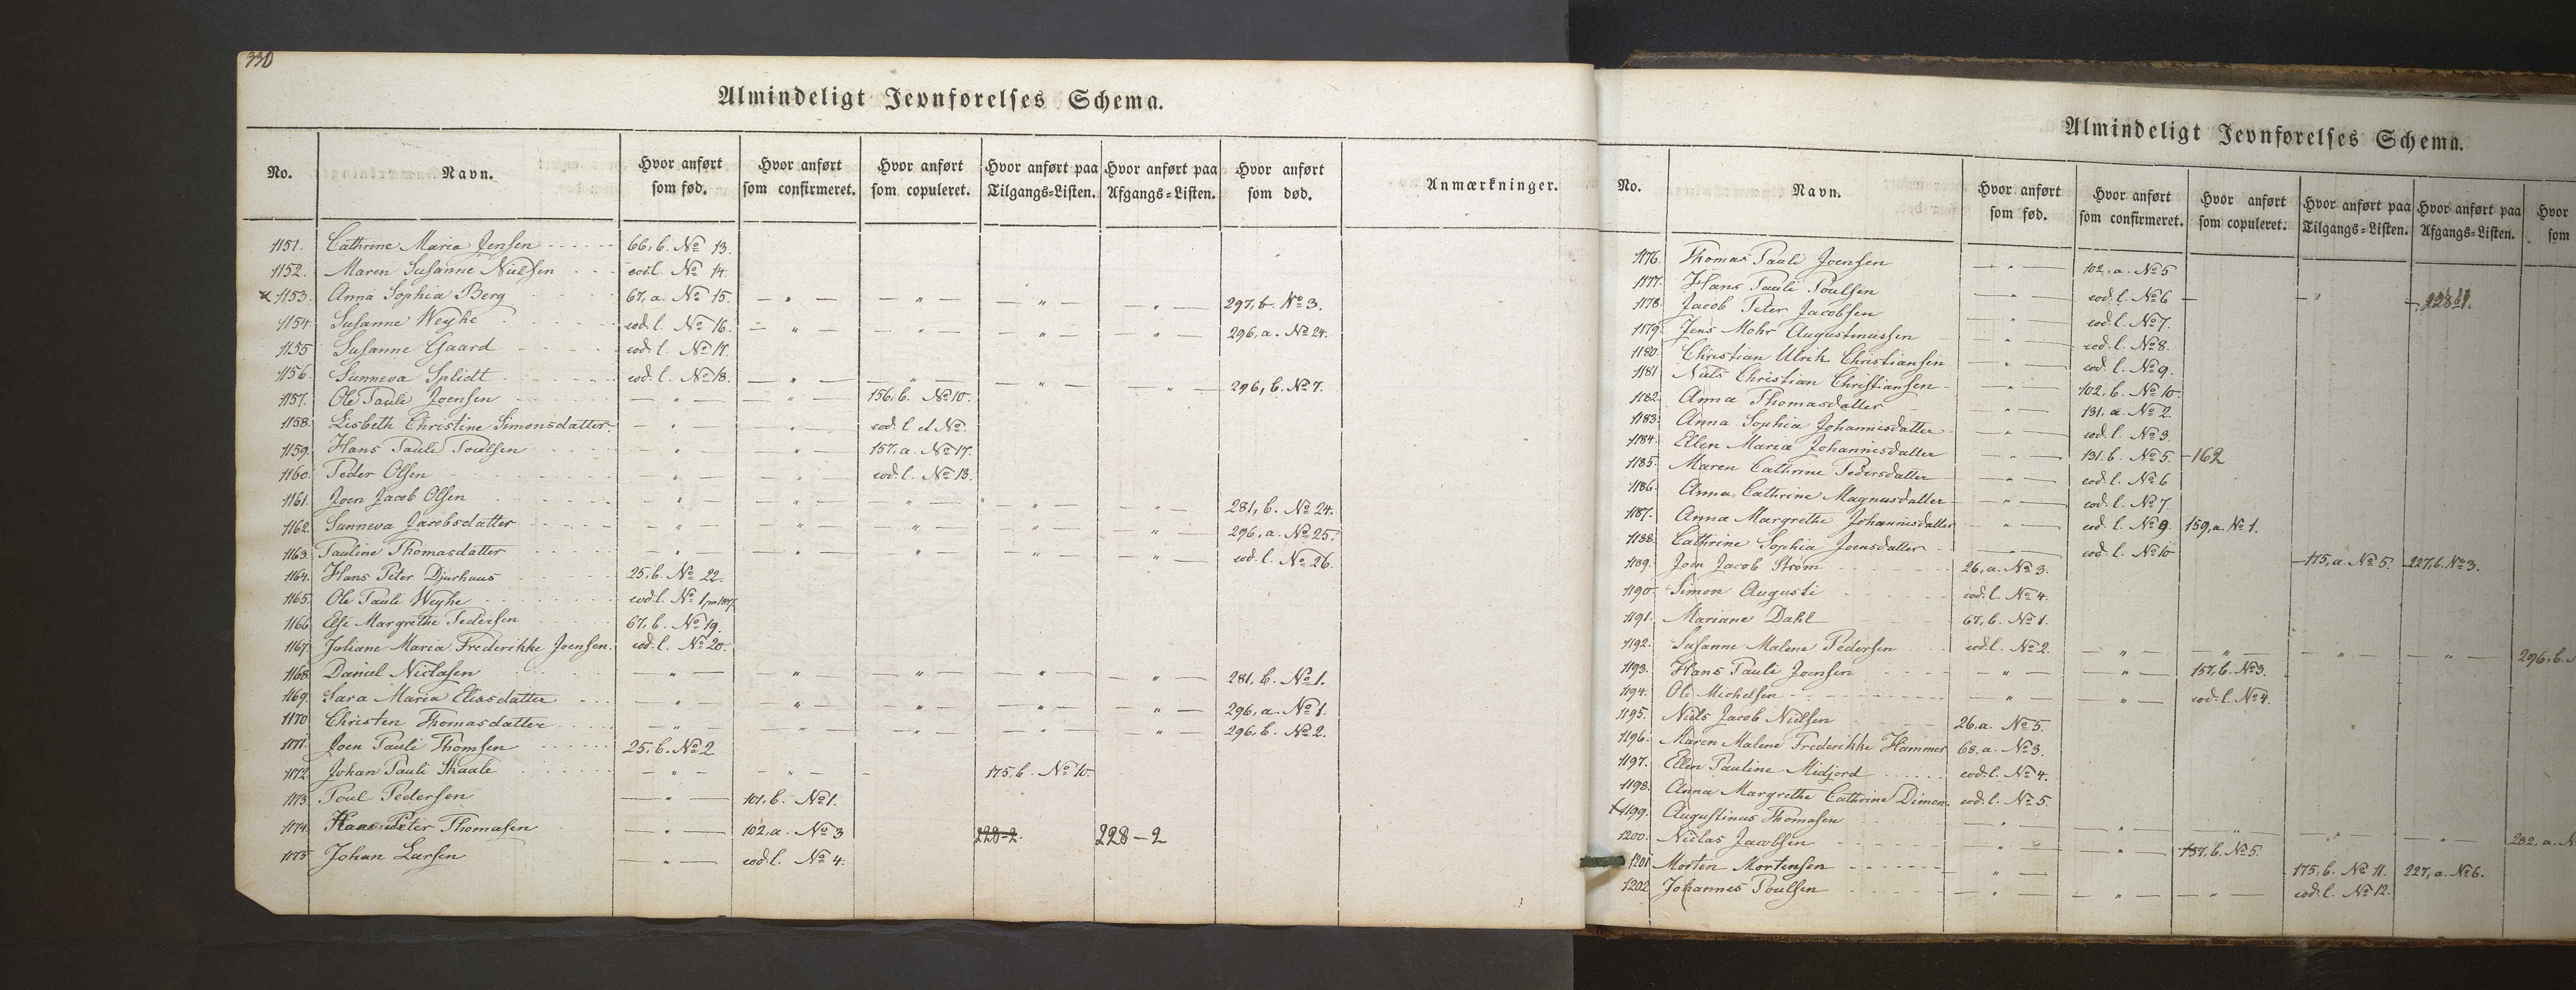 330
Almindeligt Jevnførelses Schema.
No. Navn. Hvor anført som fød. Hvor anført som confirmeret. Hvor anført som copuleret. Hvor anført paa Tilgangs-Listen. Hvor anført paa Afgangs-Listen. Hvor anført som død. Anmærkninger.
1151. Cathrine Maria Jensen 66, b. No 13.
1152. Maren Susanne Nielsen eod. l. No 14.
x 1153. Anna Sophia Berg 67, a. No 15. — " — — " — — " — " — 297, b. No 3.
1154 Susanne Weyhe eod. l. No 16. — " — — " — — " — — " — 296, a. No 24.
1155 Susanne Gaard eod. l. No 17.
1156. Sunneva Splidt eod. l. No 18. — " — — " — — " — — " — 296, b. No 7.
1157. Ole Pauli Joensen — " — — " — 156, b. No 10.
1158. Lisbeth Christine Simonsdatter. — " — — " — eod. l et No.
1159. Hans Pauli Poulsen — " — — " — 157, a. No 17.
1160. Peder Olsen — " — — " — eod. l. No 13.
1161. Joen Jacob Olsen — " — — " — — " — — " — — " — 281, b. No 24.
1162. Sunneva Jacobsdatter — " — — " — — " — — " — — " — 296, a. No 25.
1163. Pauline Thomasdatter — " — — " — — " — — " — — " — eod. l. No 26.
1164. Hans Peter Djurhuus 25, b. No 22.
1165. Ole Pauli Weyhe eod. l. No 1
1166 Else Margrethe Pedersen 67, b. No 19.
1167. Juliane Maria Frederikke Joensen. eod. l. No 20.
1168. Daniel Niclasen — " — — " — — " — — " — — " — 281, b. No 1.
1169. Sara Maria Eliasdatter — " — — " — — " — — " — — " — 296, a. No 1.
1170 Christen Thomasdatter — " — — " — — " — — " — — " — 296, b. No 2.
1171. Joen Pauli Thomsen 25, b. No 2
1172. Johan Pauli Skaale — " — — " — — 175, b. No 10.
1173. Poul Pedersen — " — 101, b. No 1.
1174. Hans Peter Thomasen — " — 102, a. No 3 228-2. 228-2
1175 Johan Larsen — " — eod. l. No 4.
Almindeligt Jevnførelses Schema.
No. Navn. Hvor anført som fød. Hvor anført som confirmeret. Hvor anført som copuleret. Hvor anført paa Tilgangs-Listen. Hvor anført paa Afgangs-Listen. Hvor som
1176. Thomas Pauli Joensen — " — 102, a. No 5
1177. Hans Pauli Poulsen — " — eod. l. No 6 — — " —
1178. Jacob Peter Jacobsen — " — eod. l. No 7.
1179. Jens Mohr Augustinussen — " — eod. l. No 8.
1180. Christian Ulrik Christiansen — " — eod. l. No 9.
1181 Niels Christian Christiansen — " — 102, b. No 10.
1182. Anna Thomasdatter — " — 131, a. No 2.
1183. Anna Sophia Johannisdatter — " — eod. l. No 3.
1184. Ellen Maria Johannisdatter — " — 131, b. No 5. — 162
1185. Maren Cathrine Pedersdatter — " — eod. l. No 6
1186. Anna Cathrine Magnusdatter — " — eod. l. No 7.
1187. Anna Margrethe Johannisdatter — " — eod. l. No 9 159, a. No 1.
1188. Cathrine Sophia Joensdatter — " — eod. l. No 10
1189. Joen Jacob Strøm 26, a. No 3. 175, a. No 5. 227, b. No 3.
1190. Simon Augusti eod. l. No 4.
1191. Mariane Dahl 67, b. No 1.
1192. Susanne Malene Pedersen eod. l. No 2. — " — — " — — " — — " — 296, b.
1193. Hans Pauli Joensen — " — — " — 157, b. No 3.
1194. Ole Michelsen — " — — " — eod. l. No 4.
1195. Niels Jacob Nielsen 26, a. No 5.
1196. Maren Malene Frederikke Hammer 68, a. No 3.
1197. Ellen Pauline Midjord eod. l. No 4.
1198. Anna Margrethe Cathrine Dimon. eod. l. No 5.
x 1199. Augustinus Thomasen — " — — " — — " — — " — — " — 282, a. N
1200. Niclas Jacobsen — " — — " — 157, b. No 5.
1201 Morten Mortensen — " — 175, b. No 11. 227, a. No 6.
1202 Johannes Poulsen — " — — " — — " — eod. l. No 12.